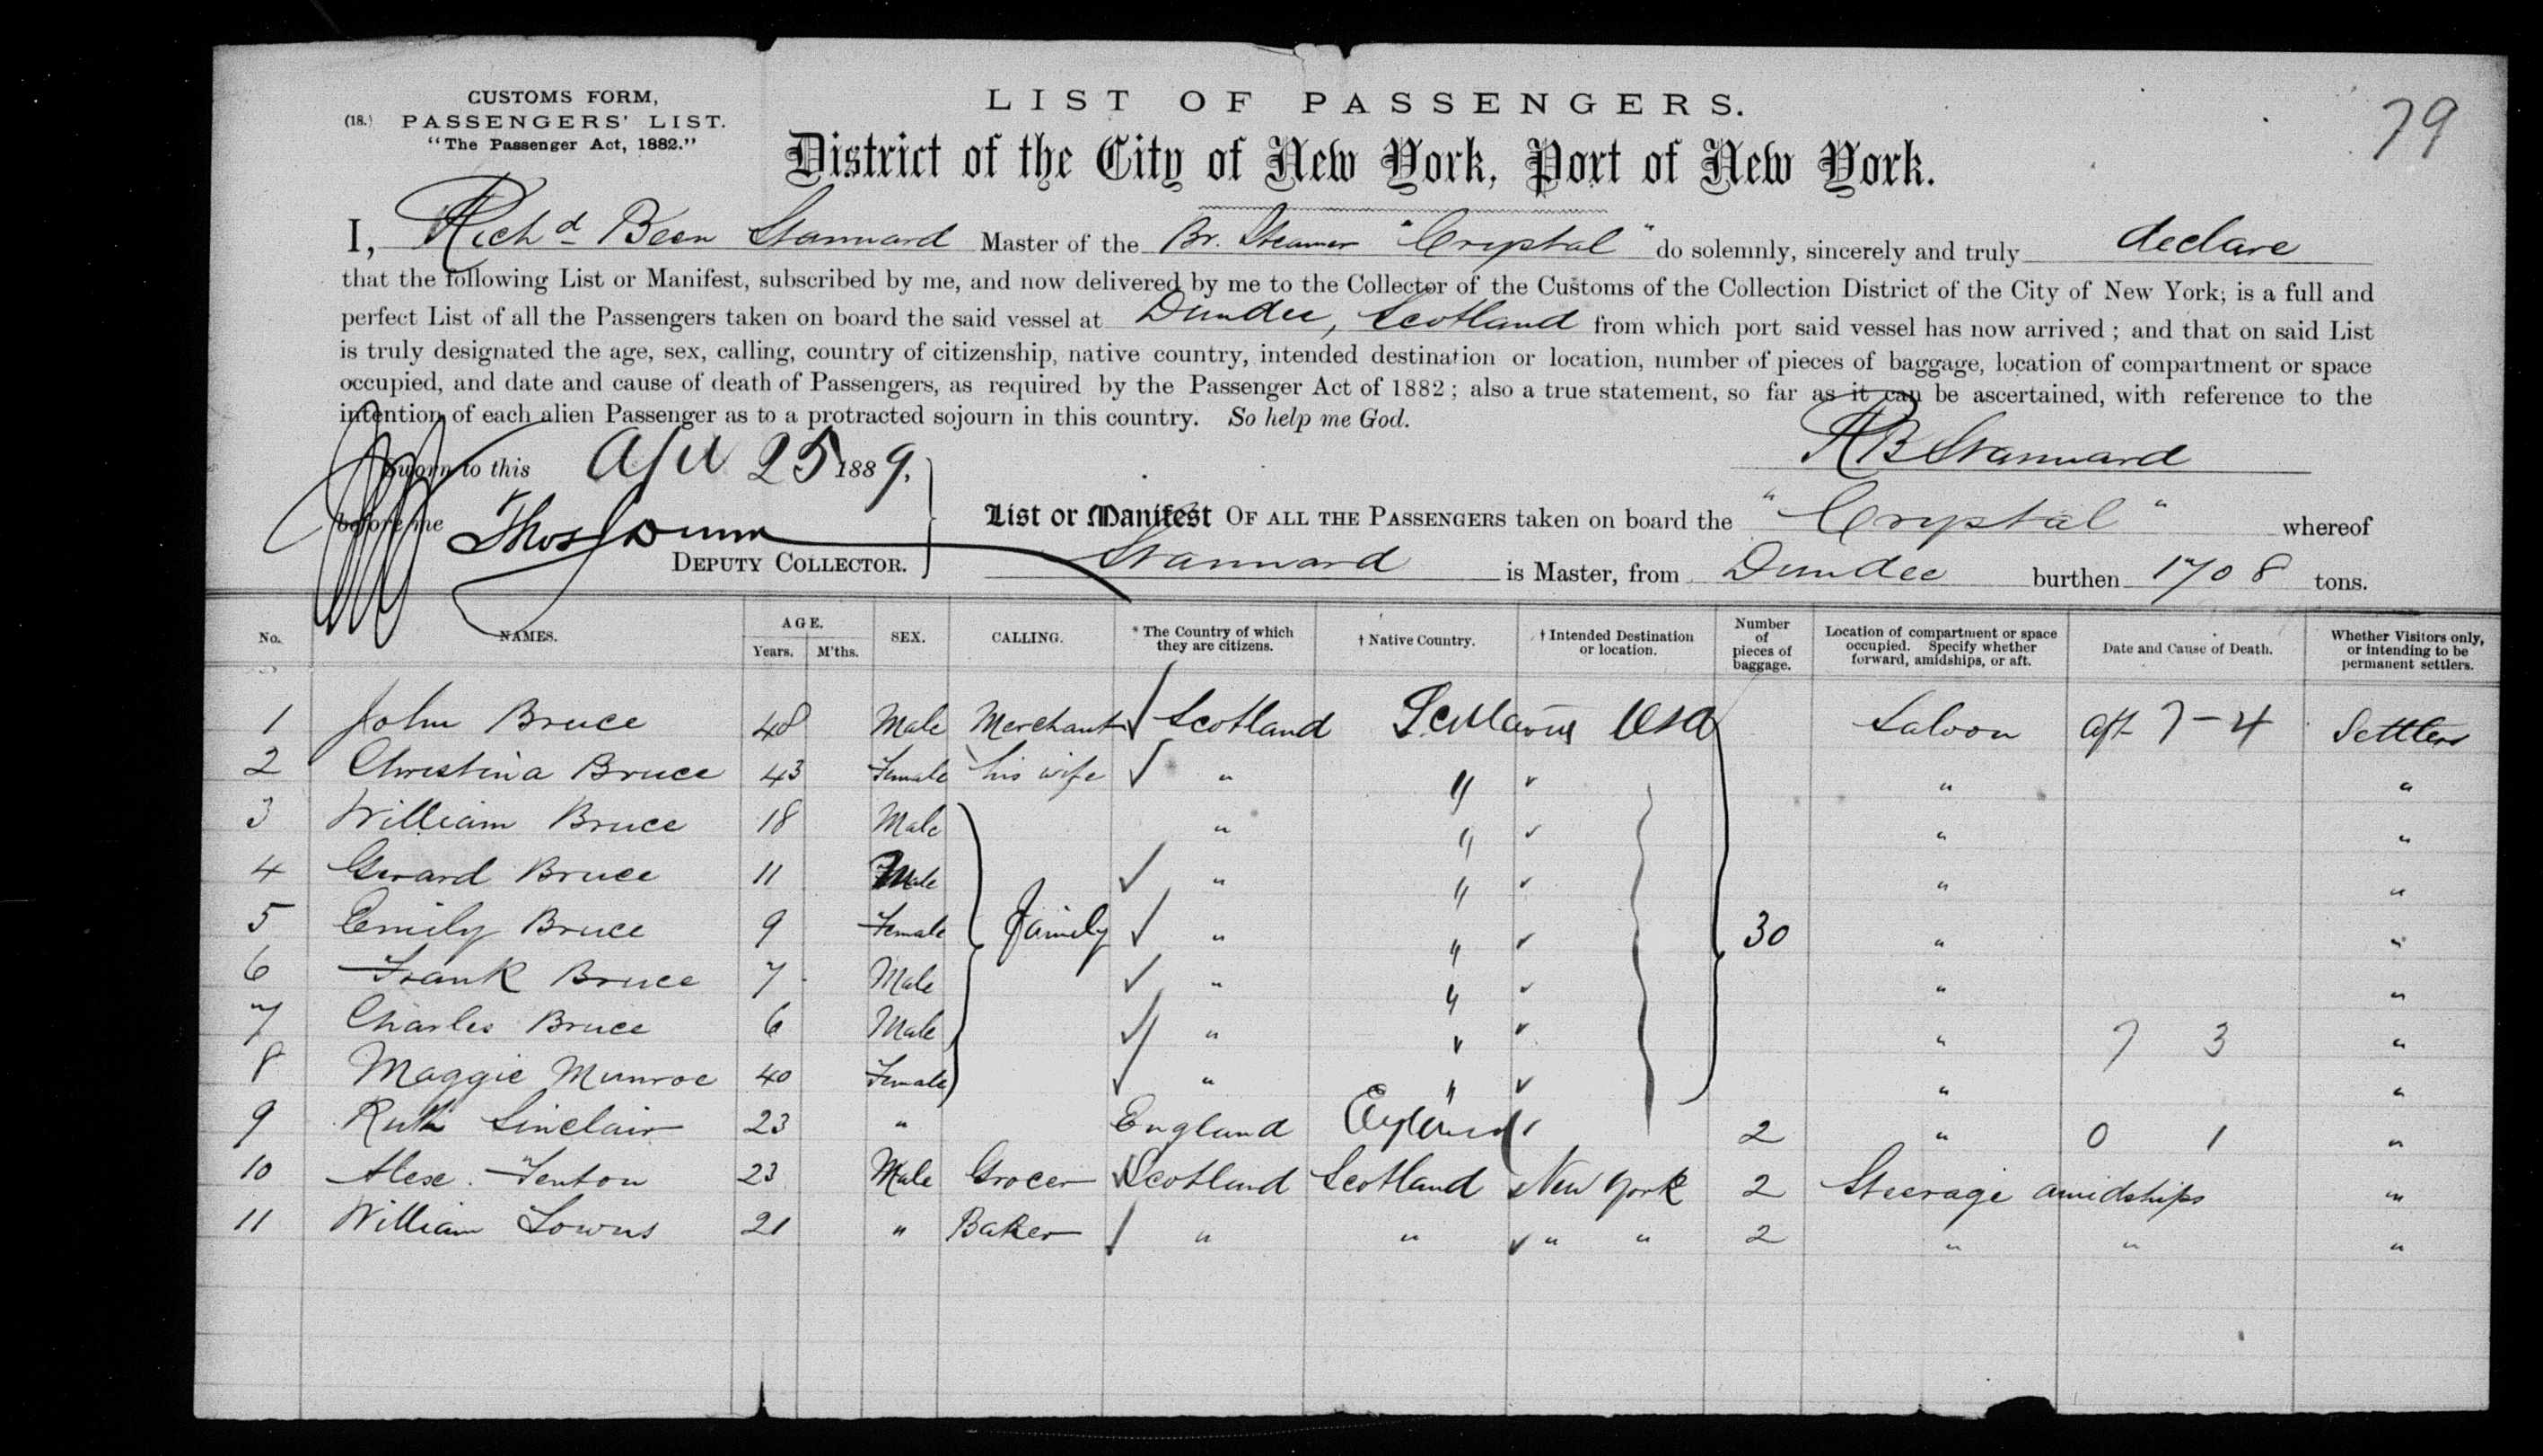 79
CUSTOMS FORM,
(18.) PASSENGERS' LIST.
"The Passenger Act, 1882."
LIST OF PASSENGERS.
District of the City of New York, Port of New York.
I, Richd Been Stannard Master of the Br. Steamer "Crystal" do solemnly, sincerely and truly declare
that the following List or Manifest, subscribed by me, and now delivered by me to the Collector of the Customs of the Collection District of the City of New York; is a full and
perfect List of all the Passengers taken on board the said vessel at Dundee, Scotland from which port said vessel has now arrived; and that on said List
is truly designated the age, sex, calling, country of citizenship, native country, intended destination or location, number of pieces of baggage, location of compartment or space
occupied, and date and cause of death of Passengers, as required by the Passenger Act of 1882; also a true statement, so far as it can be ascertained, with reference to the
intention of each alien Passenger as to a protracted sojourn in this country. So help me God.
RB Stannard
Sworn to this 25 1889.
before me Thos Dunn
DEPUTY COLLECTOR.
List or Manifest OF ALL THE PASSENGERS taken on board the "Crystal" whereof
Stannard is Master, from Dundee burthen 1708 tons.
No. NAMES. AGE. Years. M'ths. SEX. CALLING. * The Country of which they are citizens. † Native Country. † Intended Destination or location. Number of pieces of baggage. Location of compartment or space occupied. Specify whether forward, amidships, or aft. Date and Cause of Death. Whether Visitors only, or intending to be permanent settlers.
1 John Bruce 48 Male Merchant Scotland Scotland USA Saloon aft 7-4 Settlers
2 Christina Bruce 43 Female his wife " " " "
3 William Bruce 18 Male " " " "
4 Gerard Bruce 11 Male " " " "
5 Emily Bruce 9 Female Family " " 30 " "
6 Frank Bruce 7 Male " " " "
7 Charles Bruce 6 Male " " " 7 3 "
8 Maggie Munroe 40 Female " " " "
9 Ruth Sinclair 23 " England England 2 " 0 1 "
10 Alex. Fenton 23 Male Grocer Scotland Scotland New York 2 Steerage amidships "
11 William Lowns 21 " Baker " " " " 2 " " "